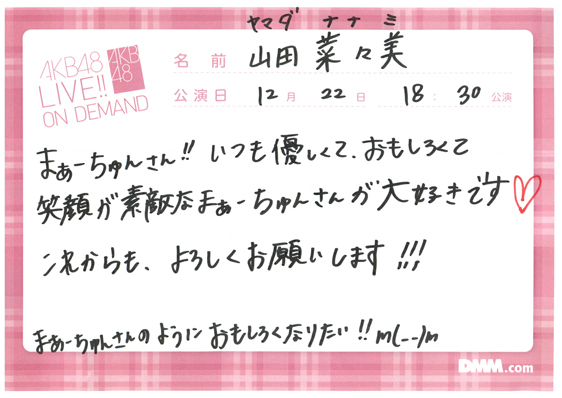 AKB48
LIVE!!
ON DEMAND
AKB
48
ヤマダ ナナミ
名前 山田 菜々美
公演日 12月 22日 18:30 公演
まぁーちゅんさん!! いつも優しくて、おもしろくて
笑顔が素敵なまぁーちゅんさんが大好きです♡
これからも、よろしくお願いします!!!
まぁーちゅんさんのようにおもしろくなりたい!! m(_ _)m
DMM.com